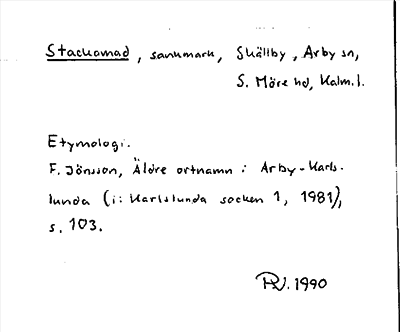 Stackamad, sankmark, Skällby, Arby sn,
S. Möre hd, Kalm. l.
Etymologi.
F. Jönsson, Äldre ortnamn i Arby-Karls-
lunda (i: Karlslunda socken 1, 1981),
s. 103.
RV. 1990